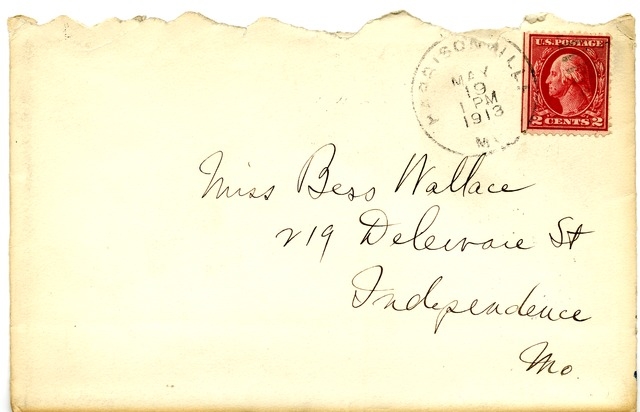 HARRISONVILLE
MAY
19
1 PM
1913
MO.
U.S. POSTAGE
2 CENTS 2
Miss Bess Wallace
219 Delewaie St
Independence
Mo.